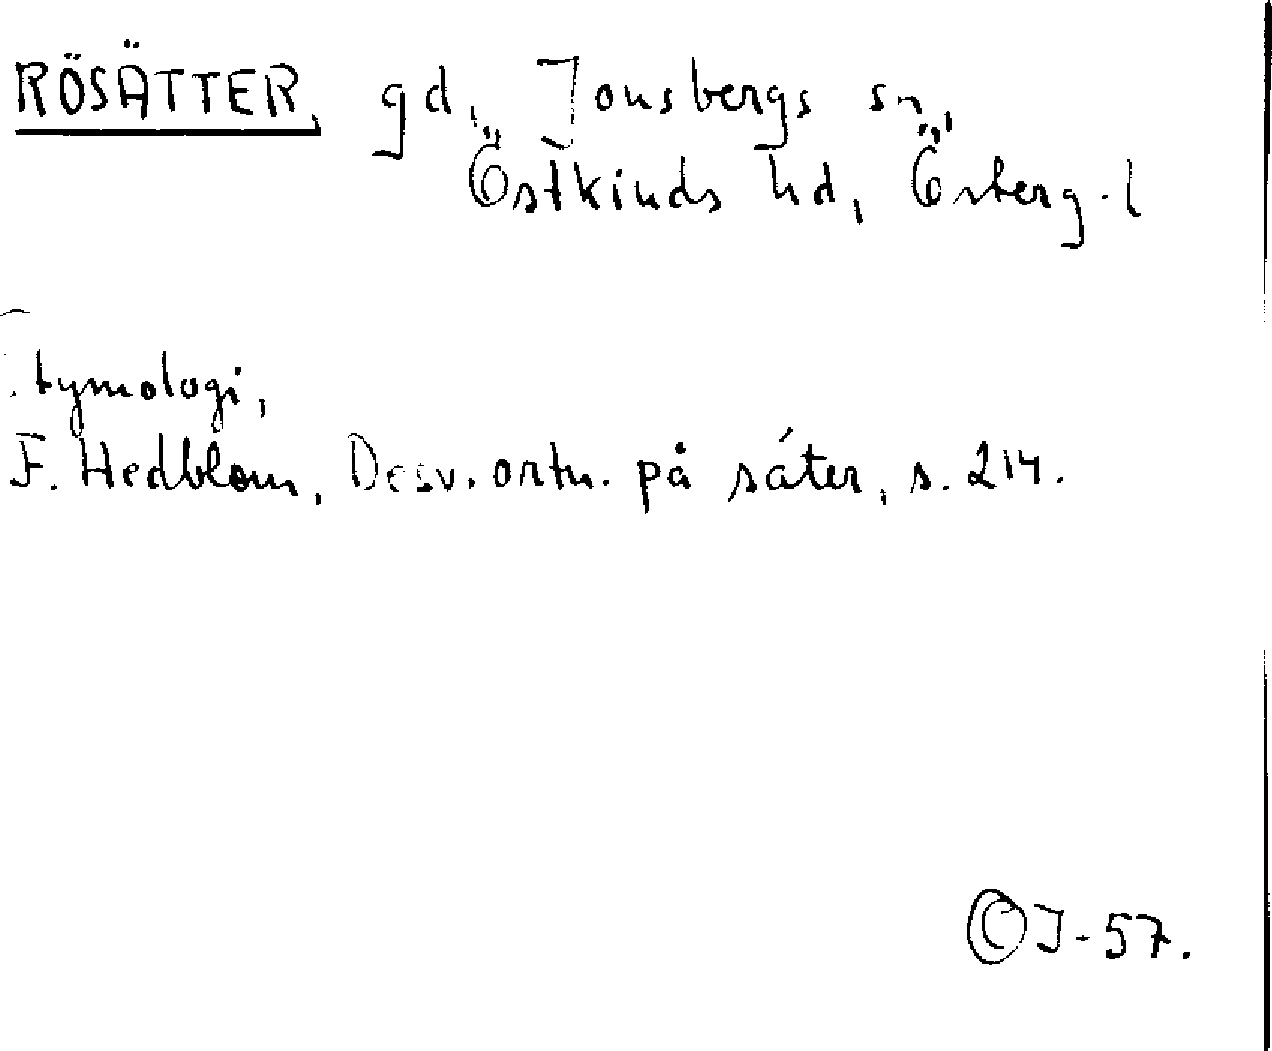 RÖSÄTTER, gd, Jonsbergs sn,
Östkinds hd, Österg. l
Etymologi,
F. Hedblom, Desv. ortn. på säter, s. 214.
©J-57.